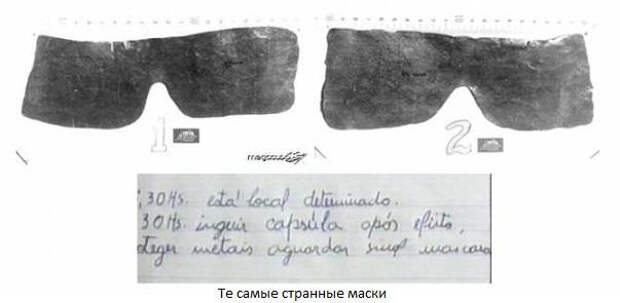 1
2
,30 Hs. está local determinado.
30 Hs. ingerir capsúla após efeito,
oteger metais aguardar sinal mascara
Те самые странные маски